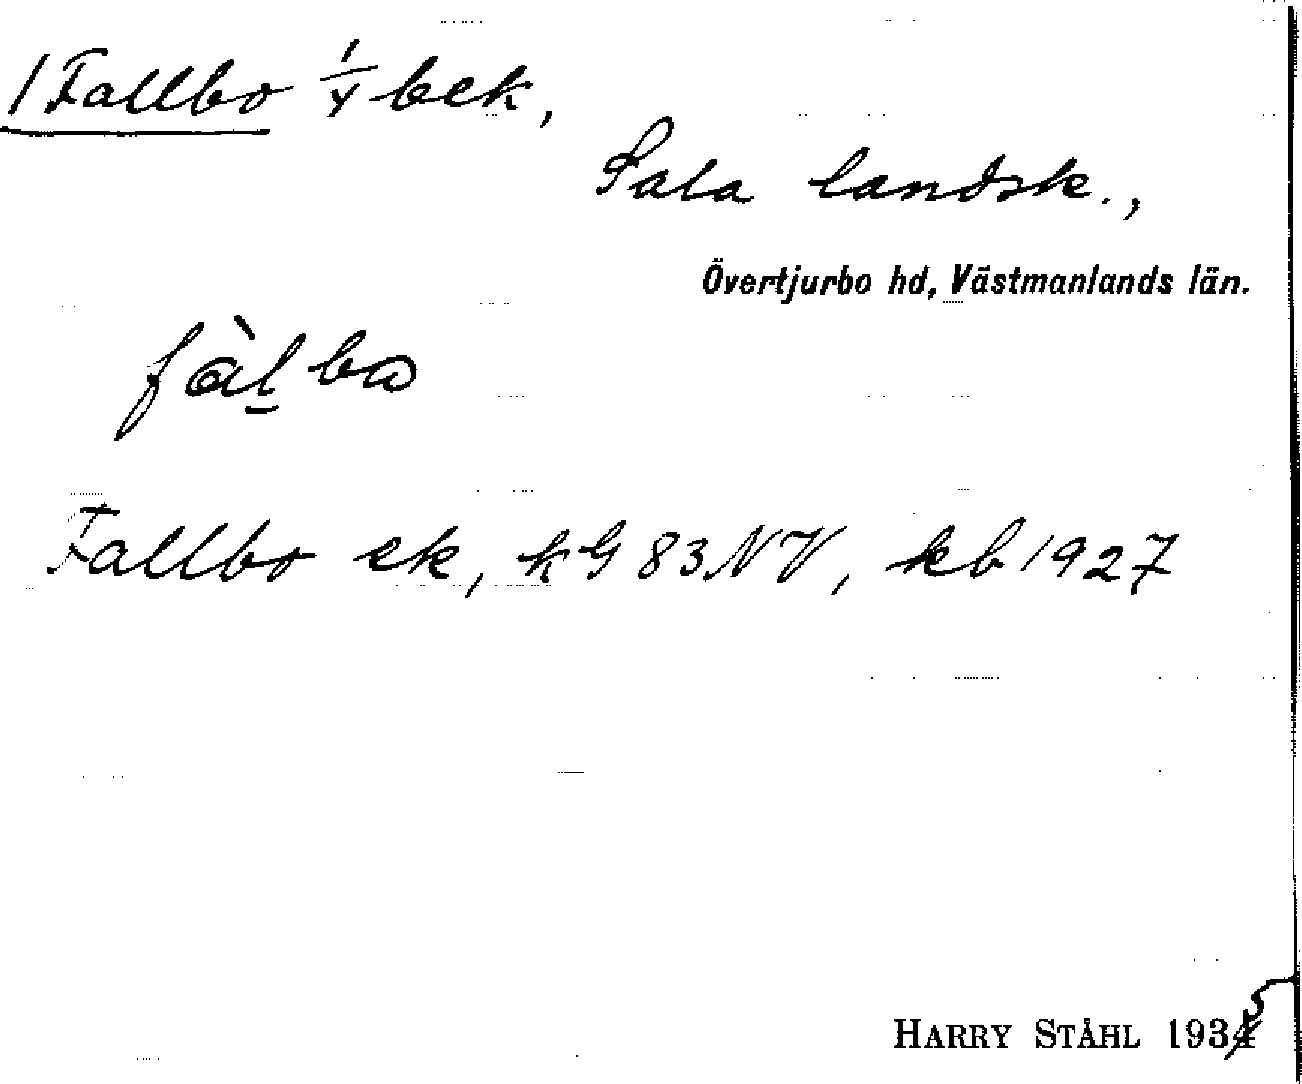 / Fallbo 1/4 bek,
Sala landsk.,
Övertjurbo hd, Västmanlands län.
fàḻbω
Fallbo ek, kG 83 NV, kb 1927
HARRY STÅHL 1935